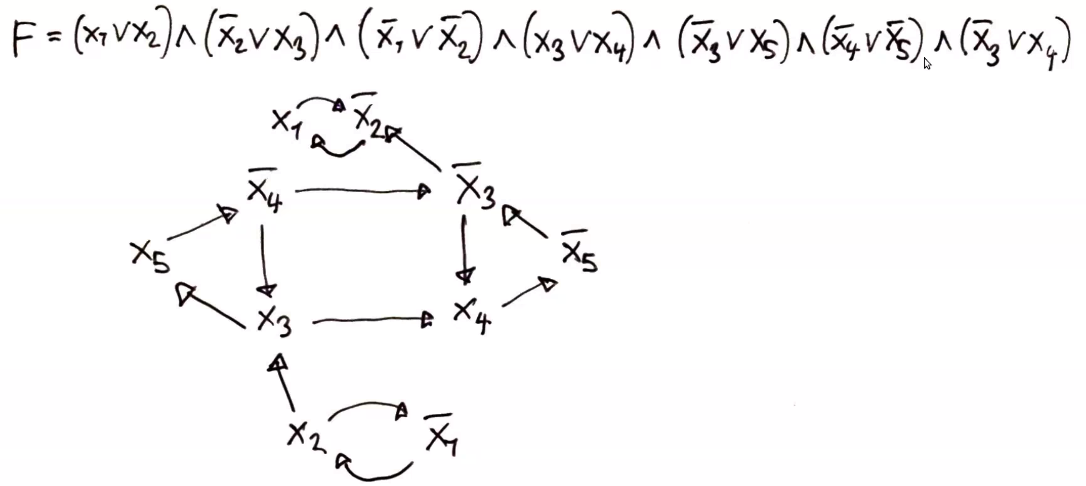 F = (x₁ ∨ x₂) ∧ (x̅₂ ∨ x₃) ∧ (x̅₁ ∨ x̅₂) ∧ (x₃ ∨ x₄) ∧ (x̅₃ ∨ x₅) ∧ (x̅₄ ∨ x̅₅) ∧ (x̅₃ ∨ x₄)
x₁ x̅₂
x̅₄ x̅₃
x₅ x̅₅
x₃ x₄
x₂ x̅₁